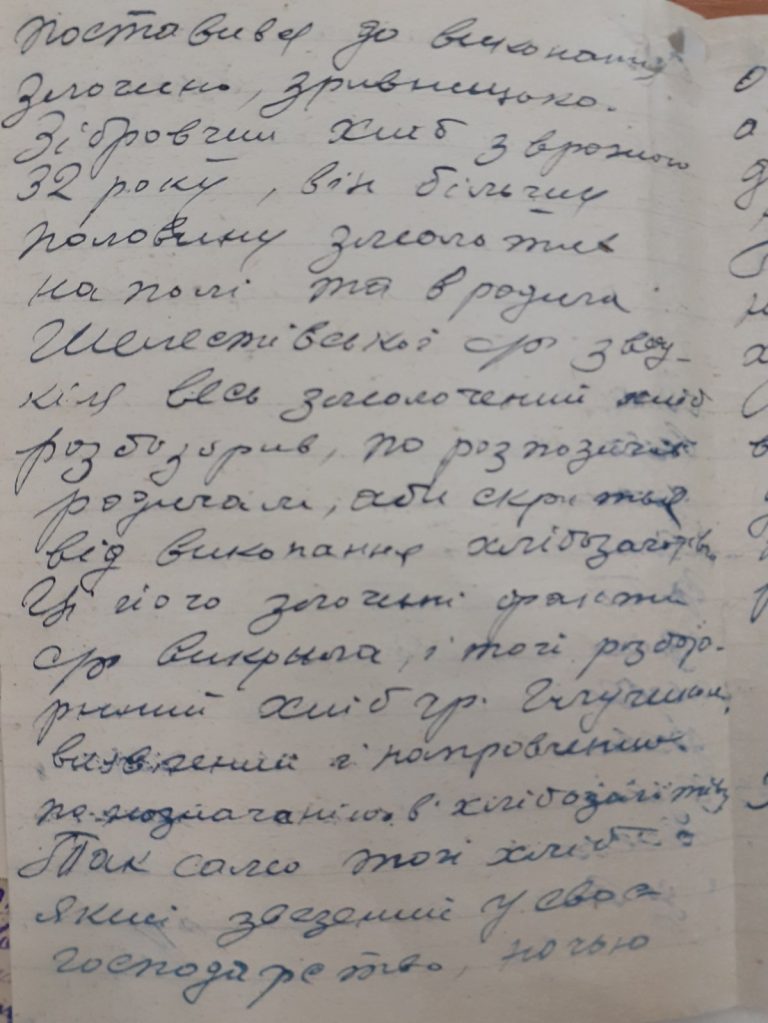 поставився до виконання
злочинно, зривницько.
Зібравши хліб з врожаю
32 року, він більшу
половину змолотив
на полі та в родича
Шелестівської с/р звід-
кіля весь змолочений хліб
розбазарив, по розпозичав
родичам, аби скритися
від виконання хлібозаготівль.
Ці його злочинні факти
с/р викрила, і той розбаза-
рений хліб гр.
виявлений і направлений
по назначанню в хлібозаготівлю
Так само той хліб
який звезений у своє
господарство, ночью